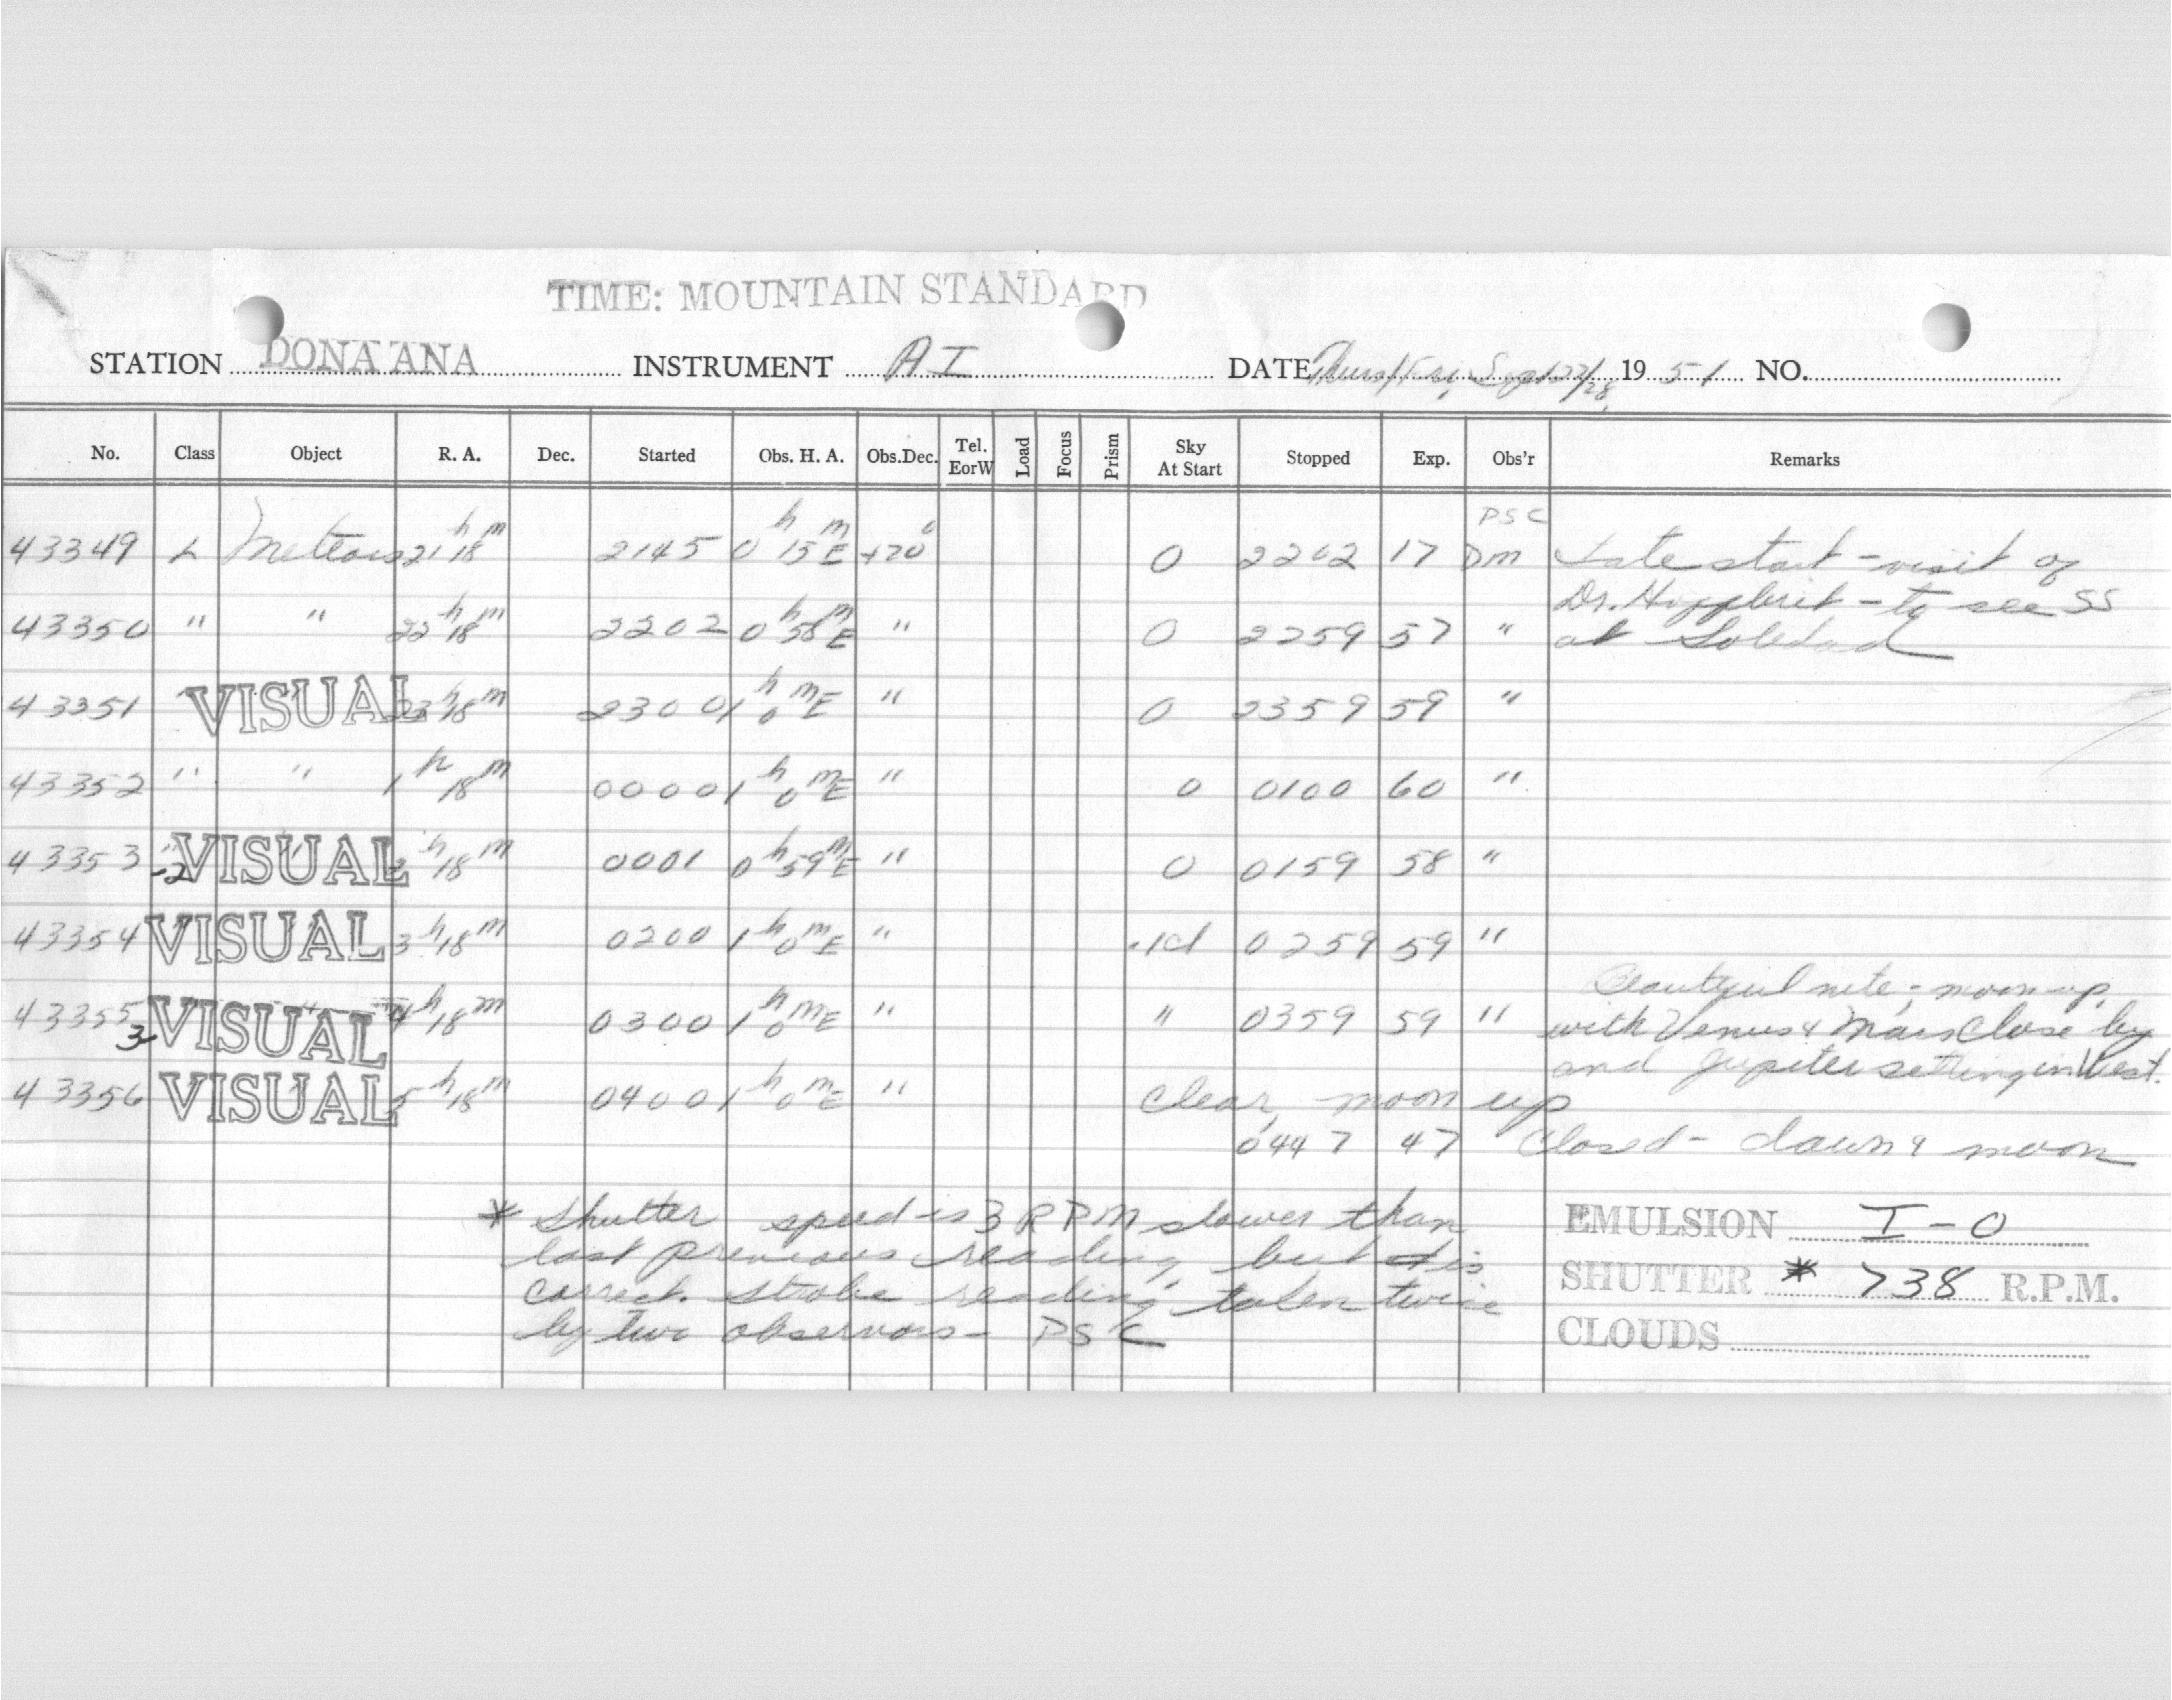 TIME: MOUNTAIN STANDARD
STATION DONA ANA INSTRUMENT AI DATE Thurs/Fri, Sept 27/28, 1951 NO.
No. Class Object R. A. Dec. Started Obs. H. A. Obs.Dec. Tel. EorW Load Focus Prism Sky At Start Stopped Exp. Obs'r Remarks
PSC
43349 L Meteors 21h 18m 2145 0h 15m E +20° 0 2202 17 DM Late start - visit of
Dr. - to see SS
43350 " " 22h 18m 2202 0h 58m E " 0 2259 57 " at Soledad
43351 VISUAL 23h 18m 2300 1h 0m E " 0 2359 59 "
43352 " " 1h 18m 0000 1h 0m E " 0 0100 60 "
43353 -2 VISUAL 2h 18m 0001 0h 59m E " 0 0159 58 "
43354 VISUAL 3h 18m 0200 1h 0m E " .1d 0259 59 "
Beautiful nite; moon up,
43355 3 VISUAL 4h 18m 0300 1h 0m E " " 0359 59 " with Venus & Mars close by
and Jupiter setting in West.
43356 VISUAL 5h 18m 0400 1h 0m E " Clear, moon up
0447 47 Closed - dawn & moon
* Shutter speed is 3 RPM slower than
last previous reading, but is
correct. Strobe reading taken twice
by two observors - PSC
EMULSION I-O
SHUTTER * 738 R.P.M.
CLOUDS